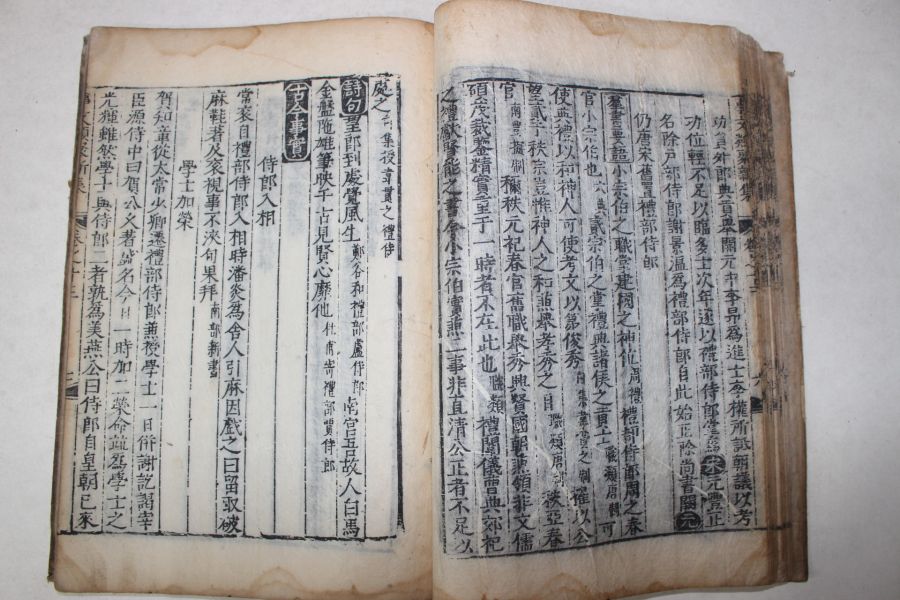 功員外郎典貢舉開元中李昂爲進士李權所詆朝議以考
功位輕不足以臨多士次年遂以禮部侍郎
宋
元豊正
名除戶部侍郎謝景溫爲禮部侍郎自此始正除尚書
仍唐宋舊置禮部侍郎
羣書要語
小宗伯之職掌建國之神位
周禮
禮部侍郎周之春
官小宗伯也
六典
貳宗伯之
禮典諸侯之貢士
職類
可
使
禮以和神人可使考文以第俊秀
宗伯貳
秩宗豈惟神人之和兼舉孝秀之目
職類
秩亞春
官
南豊
制
秩元祀春官舊職舉秀興賢國朝兼領非文儒
碩茂裁鑒精實
于一時者不在此也
職類
禮闈儀曹典郊祀
之禮獻賢能之書
小宗伯實兼二事非直清公正者不足以
處之
集授韋貫之禮侍
詩句
星郎到處覺風生
鄭谷和禮部盧侍郎
南宮吾故人白馬
金盤陁雄筆映千古見賢心靡他
杜甫寄禮部賈侍郎
古今事實
侍郎入相
常袞自禮部侍郎入相時潘炎爲舍人引麻因戲之曰留取破
麻鞋著及袞視事不浹旬果拜
南部新書
學士加榮
賀知章從太常少卿遷禮部侍郎兼授學士一日併謝訖謁宰
臣源侍中曰賀公久著盛名今日一時加二榮命
爲學士之
光輝雖然學士與侍郎二者孰爲美燕公曰侍郎自皇朝已來